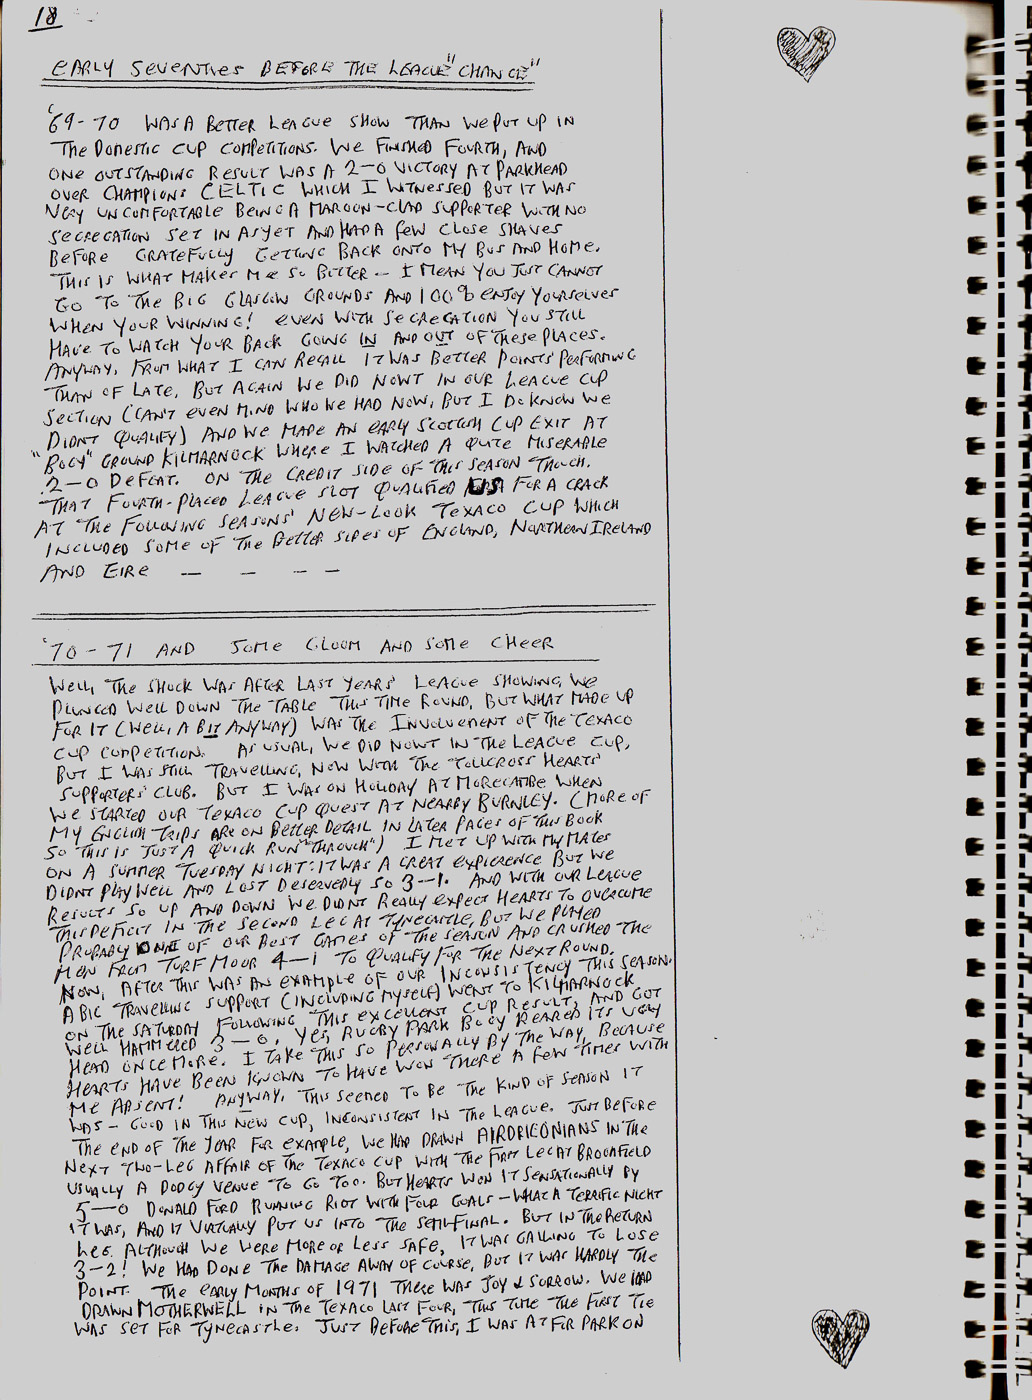 18
EARLY SEVENTIES BEFORE THE LEAGUE "CHANGE"
'69-70 WAS A BETTER LEAGUE SHOW THAN WE PUT UP IN
THE DOMESTIC CUP COMPETITIONS. WE FINISHED FOURTH, AND
ONE OUTSTANDING RESULT WAS A 2-0 VICTORY AT PARKHEAD
OVER CHAMPIONS CELTIC WHICH I WITNESSED BUT IT WAS
VERY UNCOMFORTABLE BEING A MAROON-CLAD SUPPORTER WITH NO
SEGREGATION SET IN AS YET AND HAD A FEW CLOSE SHAVES
BEFORE GRATEFULLY GETTING BACK ONTO MY BUS AND HOME.
THIS IS WHAT MAKES ME SO BITTER - I MEAN YOU JUST CANNOT
GO TO THE BIG GLASGOW GROUNDS AND 100% ENJOY YOURSELVES
WHEN YOUR WINNING! EVEN WITH SEGREGATION YOU STILL
HAVE TO WATCH YOUR BACK GOING IN AND OUT OF THESE PLACES.
ANYWAY, FROM WHAT I CAN RECALL IT WAS BETTER POINTS PERFORMING
THAN OF LATE, BUT AGAIN WE DID NOWT IN OUR LEAGUE CUP
SECTION (CAN'T EVEN MIND WHO WE HAD NOW, BUT I DO KNOW WE
DIDNT QUALIFY) AND WE MADE AN EARLY SCOTTISH CUP EXIT AT
"BOGY" GROUND KILMARNOCK WHERE I WATCHED A QUITE MISERABLE
2-0 DEFEAT. ON THE CREDIT SIDE OF THIS SEASON THOUGH.
THAT FOURTH-PLACED LEAGUE SLOT QUALIFIED US FOR A CRACK
AT THE FOLLOWING SEASONS' NEW-LOOK TEXACO CUP WHICH
INCLUDED SOME OF THE BETTER SIDES OF ENGLAND, NORTHERN IRELAND
AND EIRE — — — —
'70-71 AND SOME GLOOM AND SOME CHEER
WELL, THE SHOCK WAS AFTER LAST YEARS' LEAGUE SHOWING, WE
PLUNGED WELL DOWN THE TABLE THIS TIME ROUND, BUT WHAT MADE UP
FOR IT (WELL, A BIT ANYWAY) WAS THE INVOLVEMENT OF THE TEXACO
CUP COMPETITION. AS USUAL, WE DID NOWT IN THE LEAGUE CUP,
BUT I WAS STILL TRAVELLING, NOW WITH THE TOLLCROSS HEARTS
SUPPORTERS' CLUB. BUT I WAS ON HOLIDAY AT MORECAMBE WHEN
WE STARTED OUR TEXACO CUP QUEST AT NEARBY BURNLEY. (MORE OF
MY ENGLISH TRIPS ARE ON BETTER DETAIL IN LATER PAGES OF THIS BOOK
SO THIS IS JUST A QUICK RUN "THROUGH") I MET UP WITH MY MATES
ON A SUMMER TUESDAY NIGHT. IT WAS A GREAT EXPIERENCE BUT WE
DIDNT PLAY WELL AND LOST DESERVEDLY SO 3-1. AND WITH OUR LEAGUE
RESULTS SO UP AND DOWN WE DIDNT REALLY EXPECT HEARTS TO OVERCOME
THIS DEFICIT IN THE SECOND LEG AT TYNECASTLE, BUT WE PLAYED
PROBABLY ONE OF OUR BEST GAMES OF THE SEASON AND CRUSHED THE
MEN FROM TURF MOOR 4-1 TO QUALIFY FOR THE NEXT ROUND.
NOW, AFTER THIS WAS AN EXAMPLE OF OUR INCONSISTENCY THIS SEASON.
A BIG TRAVELLING SUPPORT (INCLUDING MYSELF) WENT TO KILMARNOCK
ON THE SATURDAY FOLLOWING THIS EXCELLENT CUP RESULT, AND GOT
WELL HAMMERED 3-0. YES, RUGBY PARK BOGY REARED ITS UGLY
HEAD ONCE MORE. I TAKE THIS SO PERSONALLY BY THE WAY, BECAUSE
HEARTS HAVE BEEN KNOWN TO HAVE WON THERE A FEW TIMES WITH
ME ABSENT! ANYWAY, THIS SEEMED TO BE THE KIND OF SEASON IT
WAS - GOOD IN THIS NEW CUP, INCONSISTENT IN THE LEAGUE. JUST BEFORE
THE END OF THE YEAR FOR EXAMPLE, WE HAD DRAWN AIRDRIEONIANS IN THE
NEXT TWO-LEG AFFAIR OF THE TEXACO CUP WITH THE FIRST LEG AT BROOMFIELD
USUALLY A DODGY VENUE TO GO TOO. BUT HEARTS WON IT SENSATIONALLY BY
5-0 DONALD FORD RUNNING RIOT WITH FOUR GOALS - WHAT A TERRIFIC NIGHT
IT WAS, AND IT VIRTUALLY PUT US INTO THE SEMI-FINAL. BUT IN THE RETURN
LEG, ALTHOUGH WE WERE MORE OR LESS SAFE, IT WAS GALLING TO LOSE
3-2! WE HAD DONE THE DAMAGE AWAY OF COURSE, BUT IT WAS HARDLY THE
POINT. THE EARLY MONTHS OF 1971 THERE WAS JOY & SORROW. WE HAD
DRAWN MOTHERWELL IN THE TEXACO LAST FOUR, THIS TIME THE FIRST TIE
WAS SET FOR TYNECASTLE. JUST BEFORE THIS, I WAS AT FIR PARK ON